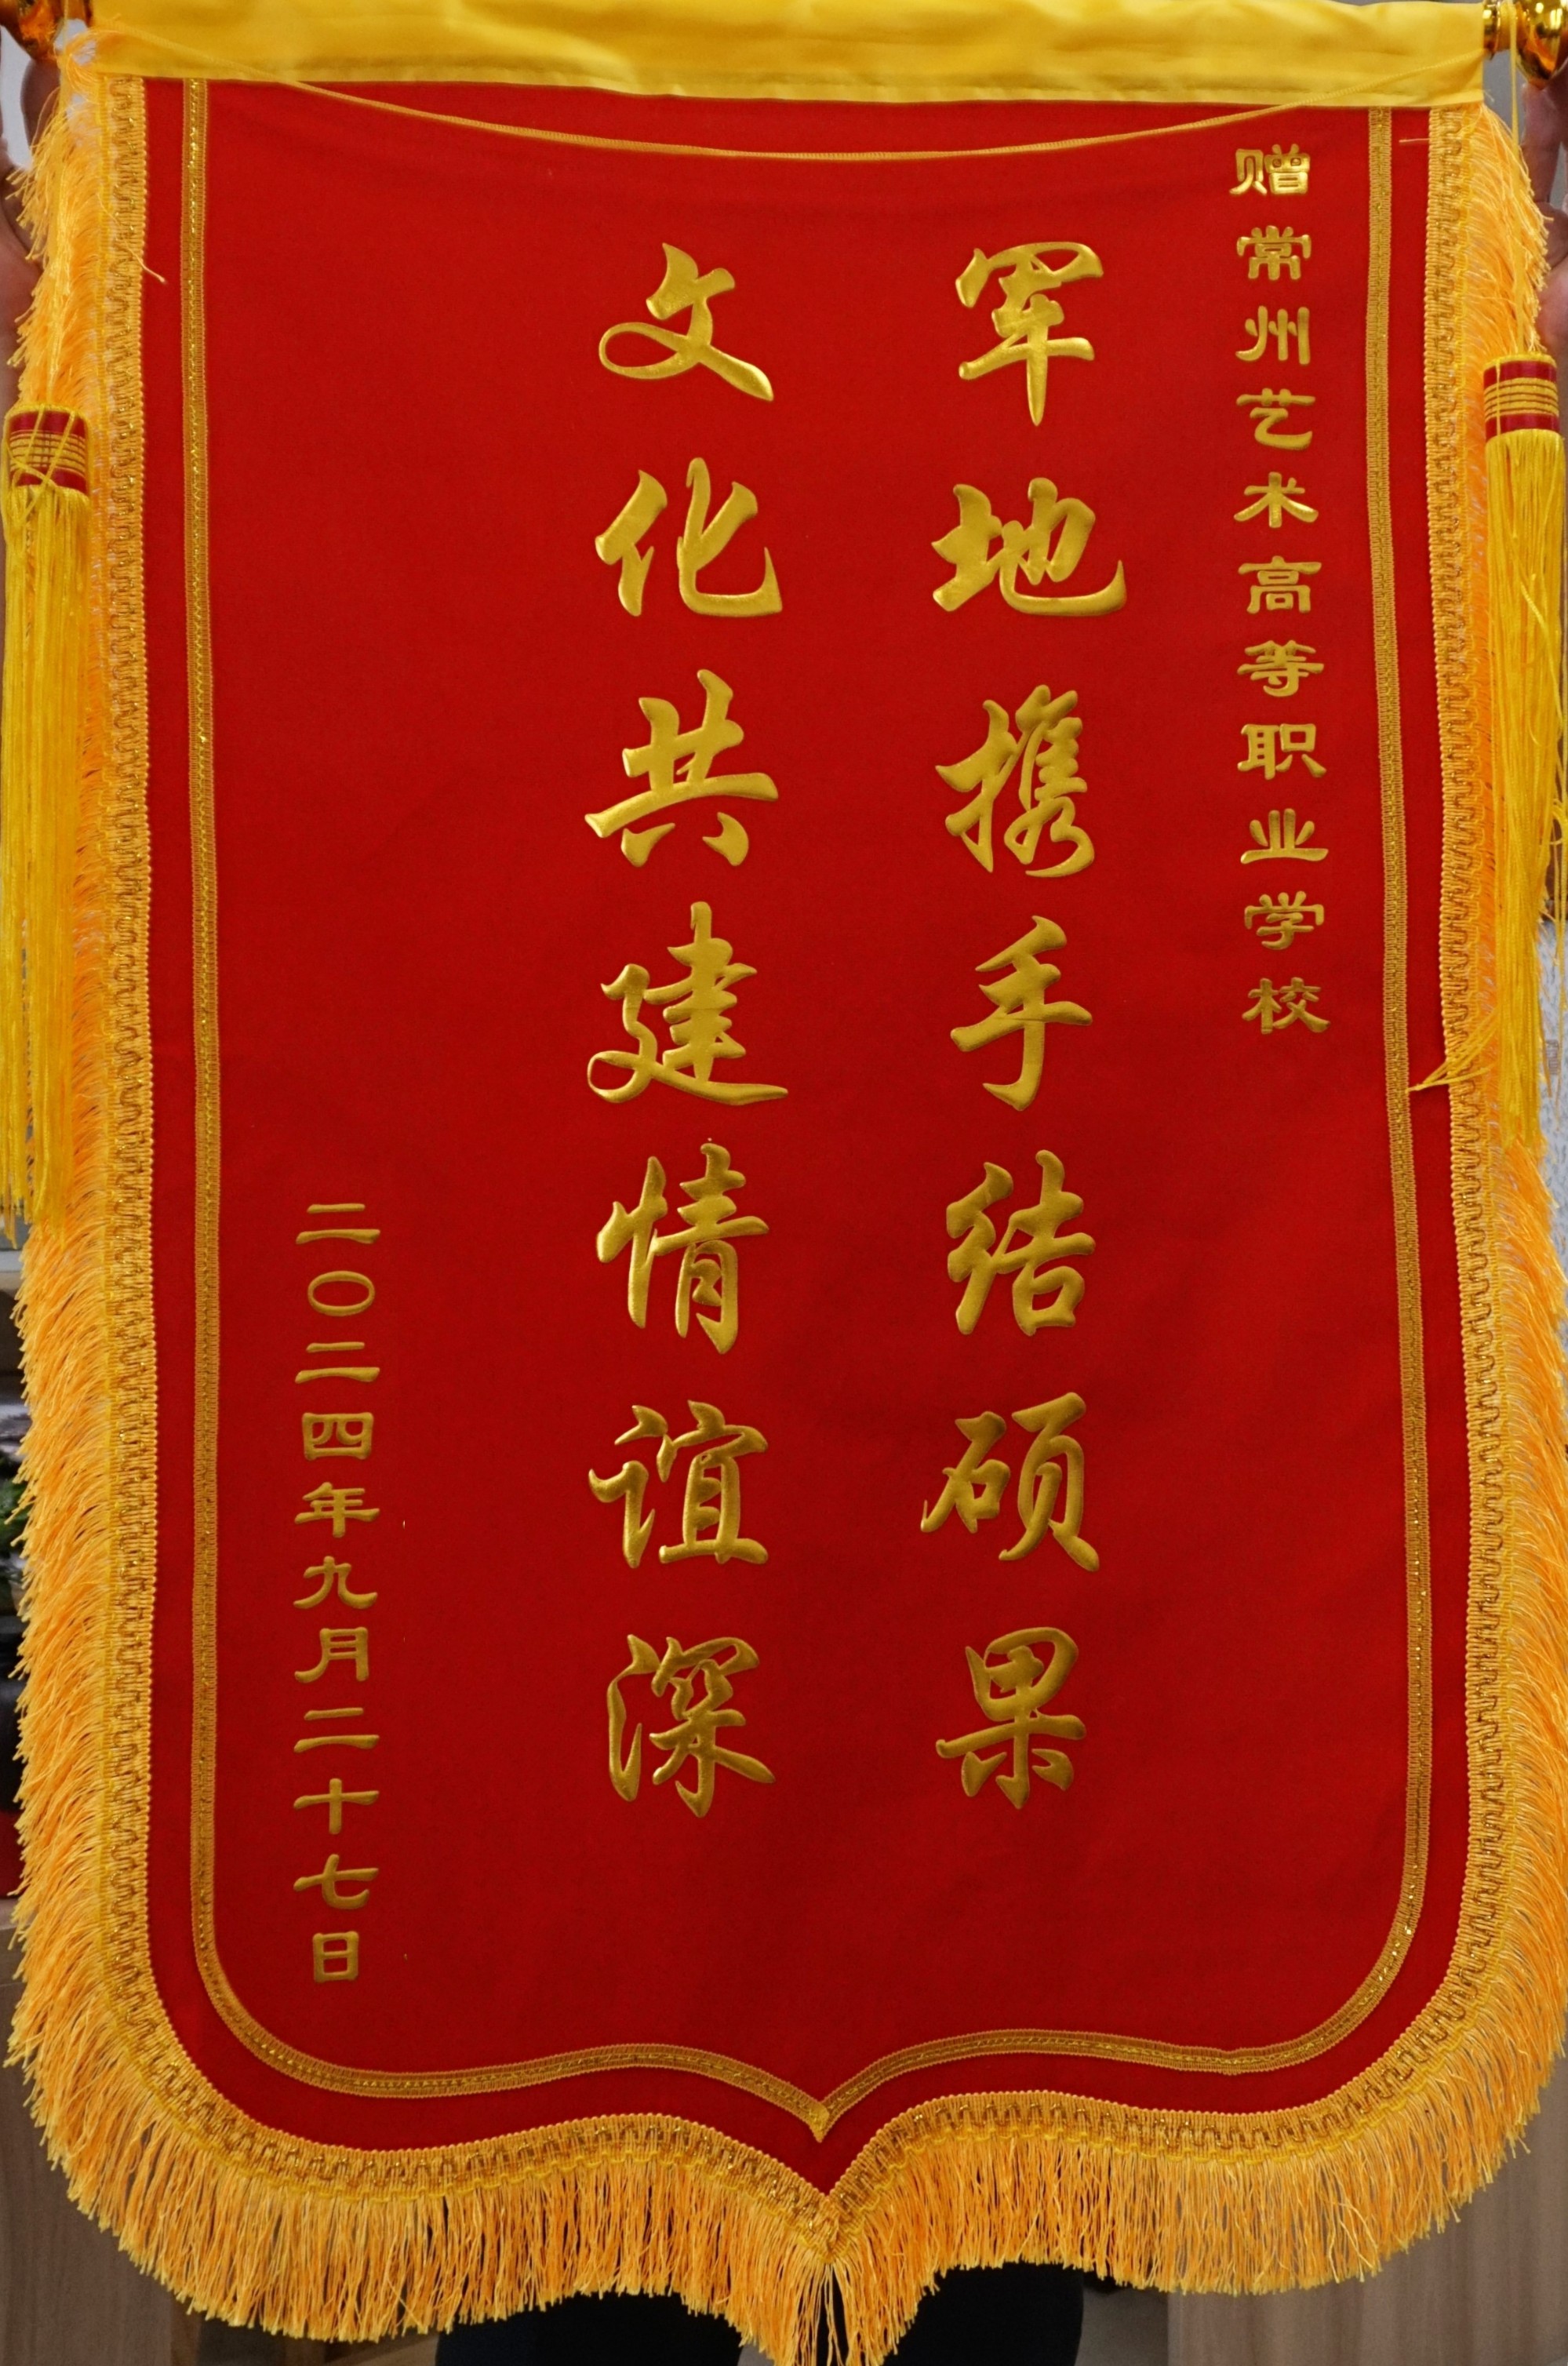 赠常州艺术高等职业学校
军地携手结硕果
文化共建情谊深
二〇二四年九月二十七日